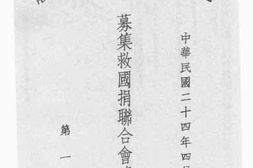 中華民國二十四年四
募集救國捐聯合會
第一